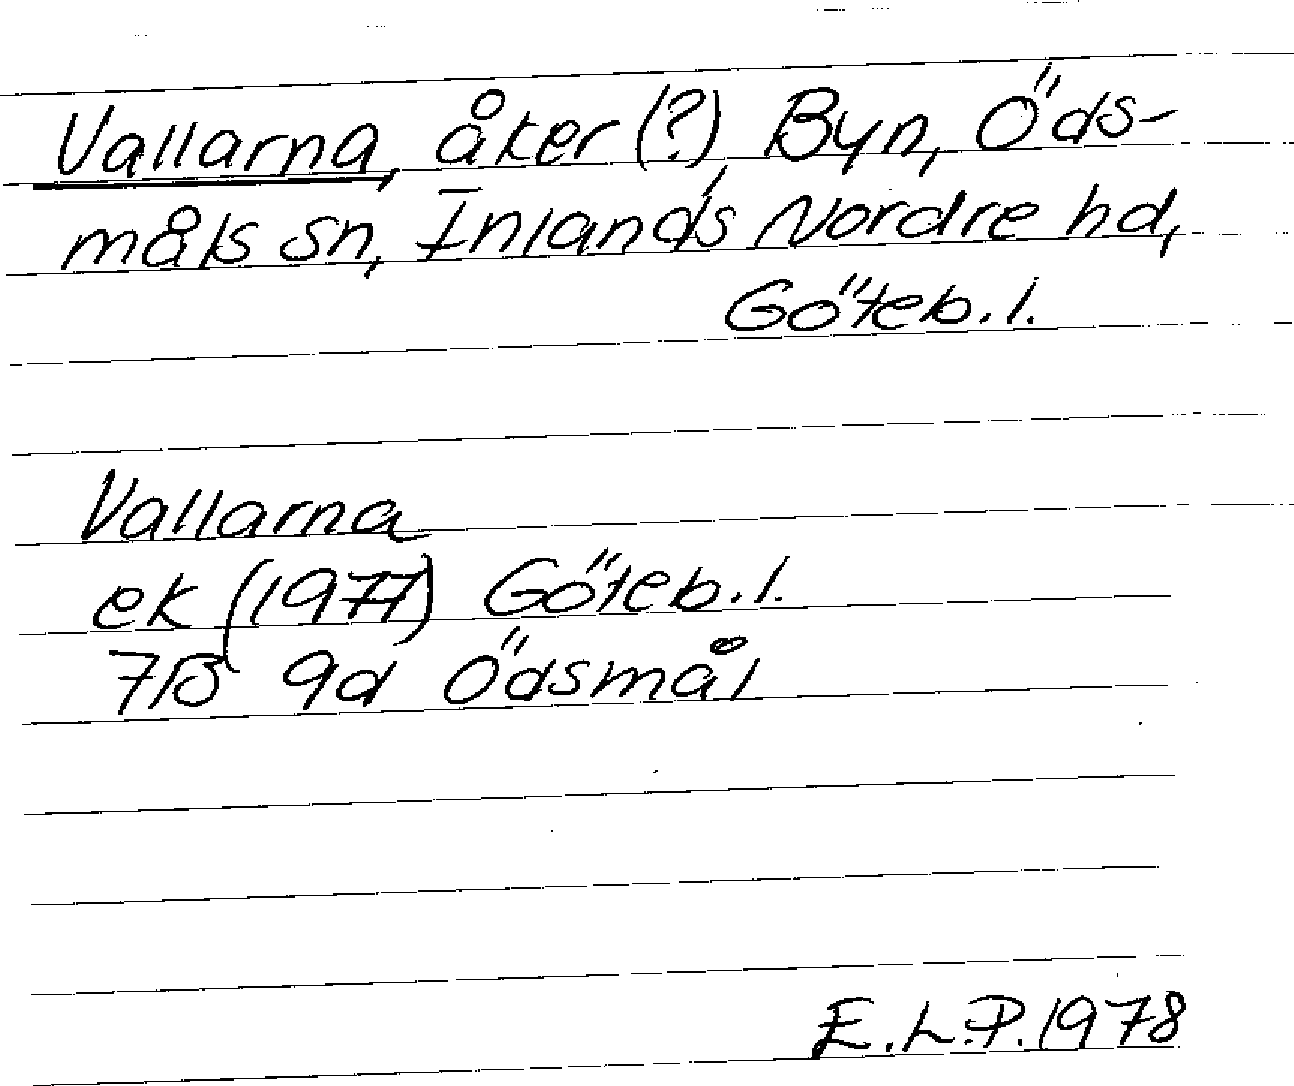 Vallarna, åker (?) Byn, Öds-
måls sn, Inlands Nordre hd,
Göteb. l.
Vallarna
ek (1977) Göteb. l.
7B 9d Ödsmål
E.L.P. 1978